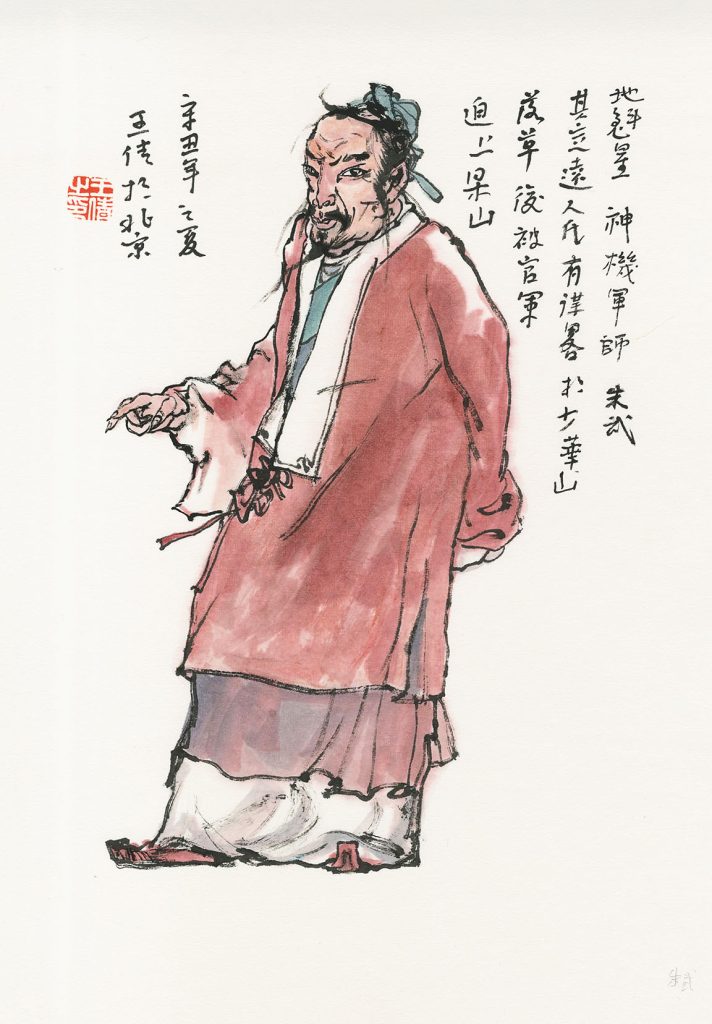 地魁星 神機軍師 朱武
其定遠人氏有謀畧於少華山
落草後被官軍
迫上梁山
辛丑年之夏
王倩於北京
王倩之印
朱武